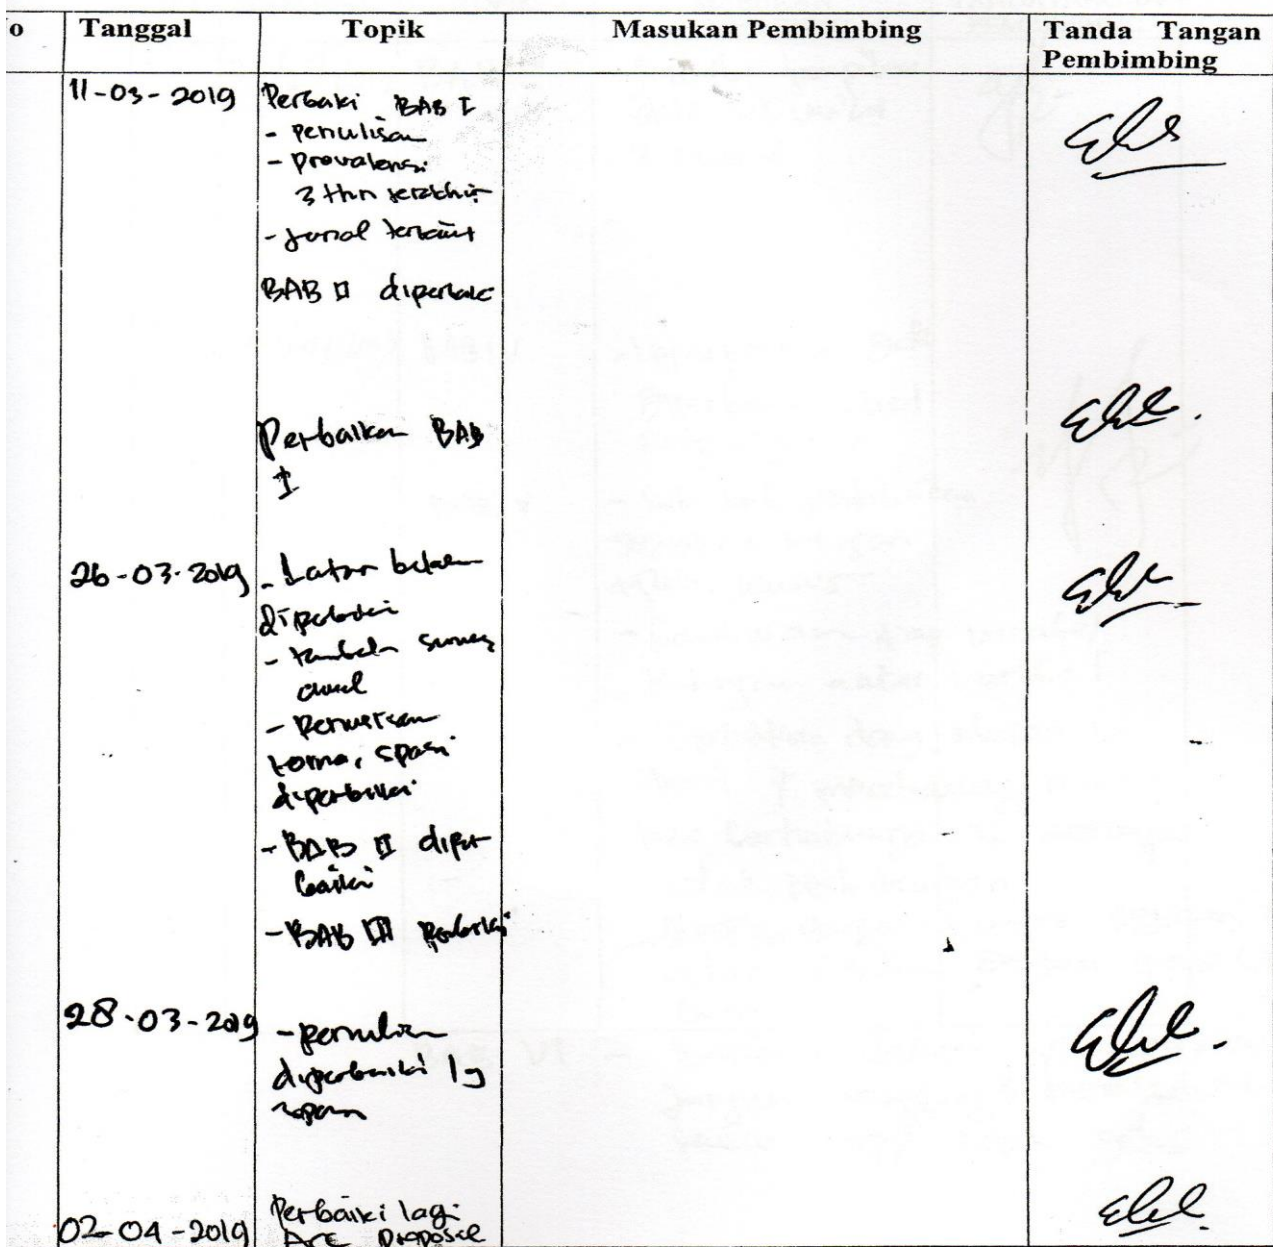 o Tanggal Topik Masukan Pembimbing Tanda Tangan
Pembimbing
11-03-2019 Perbaki BAB I
- penulisan
- prevalensi
3 thn terakhir
- jurnal terkait
BAB II
Perbaikan BAB
I
26-03-2019 - Latar
- tambah survey
awal
-
koma, spasi
diperbaiki
- BAB II diper
baiki
- BAB III
28-03-2019 - penulisan
diperbaiki lg
02-04-2019 Perbaiki lagi
ACC Proposal